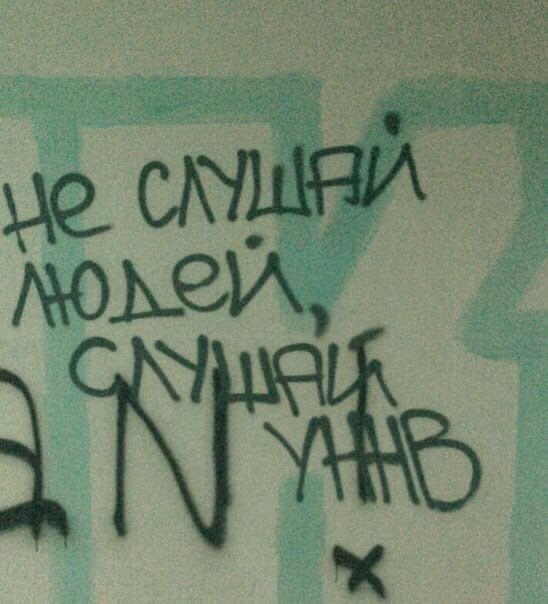 не слушай
людей,
слушай
УННВ